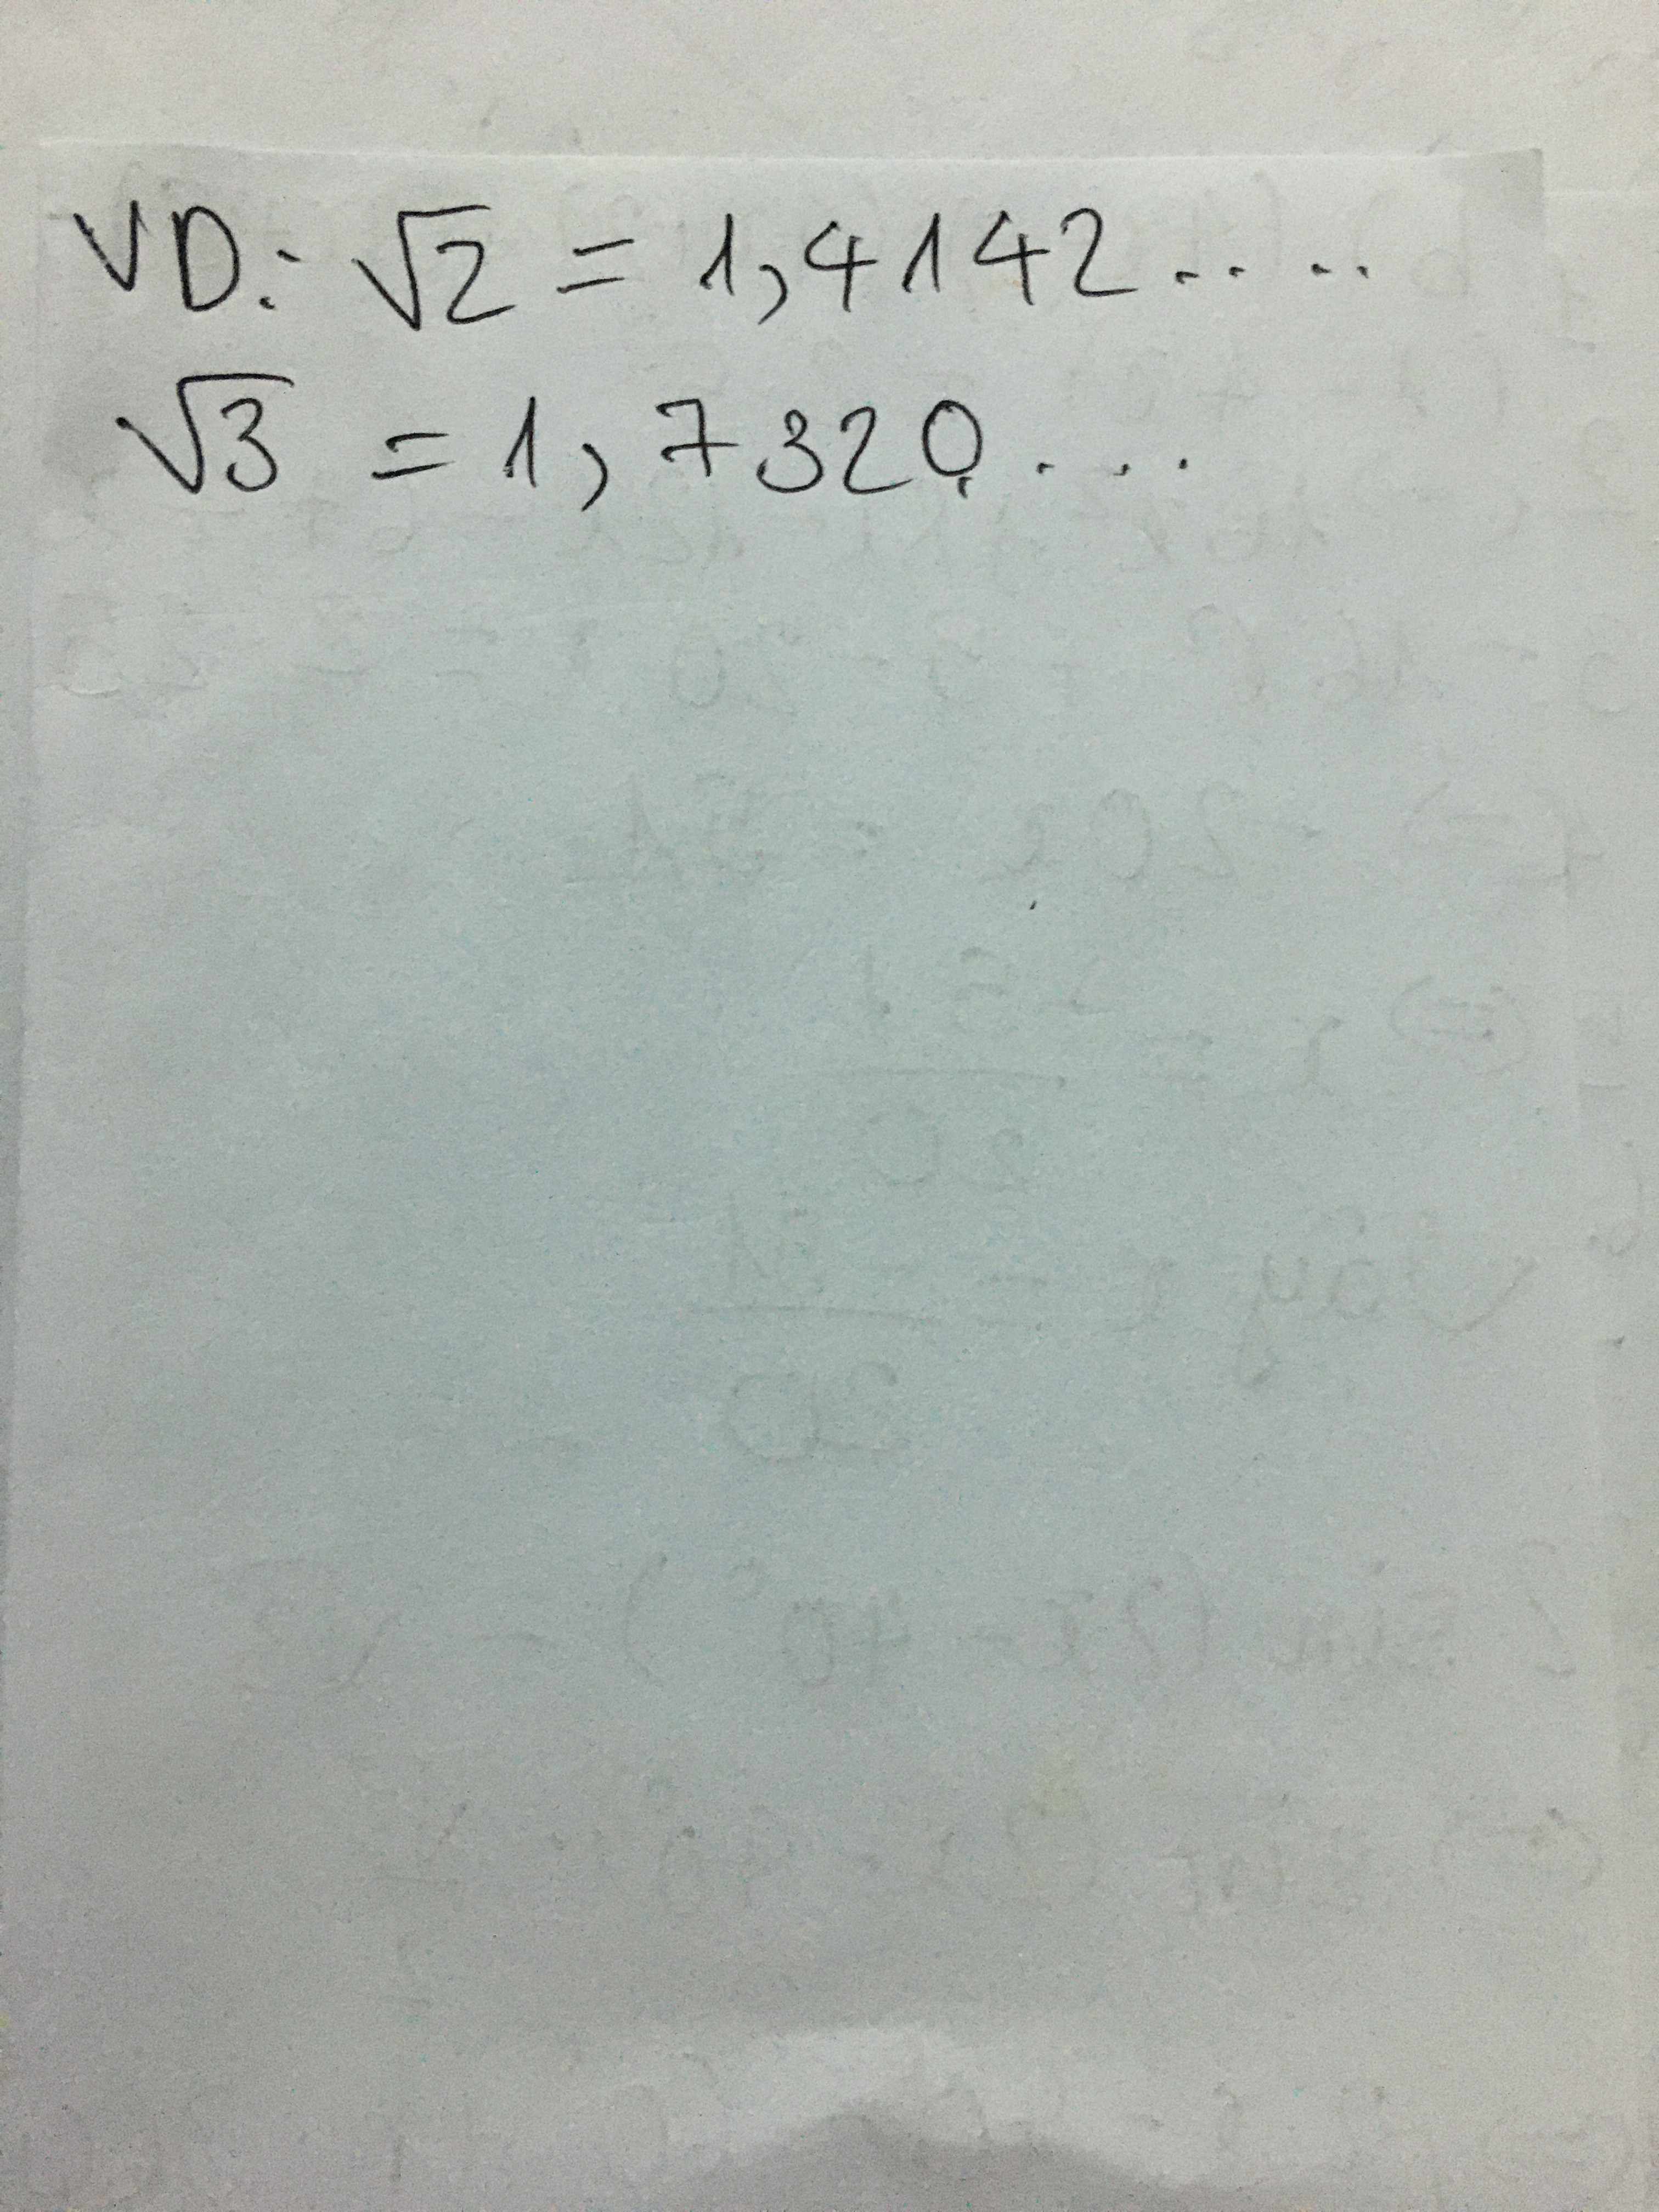 VD: √2 = 1,4142.....
√3 = 1,7320....